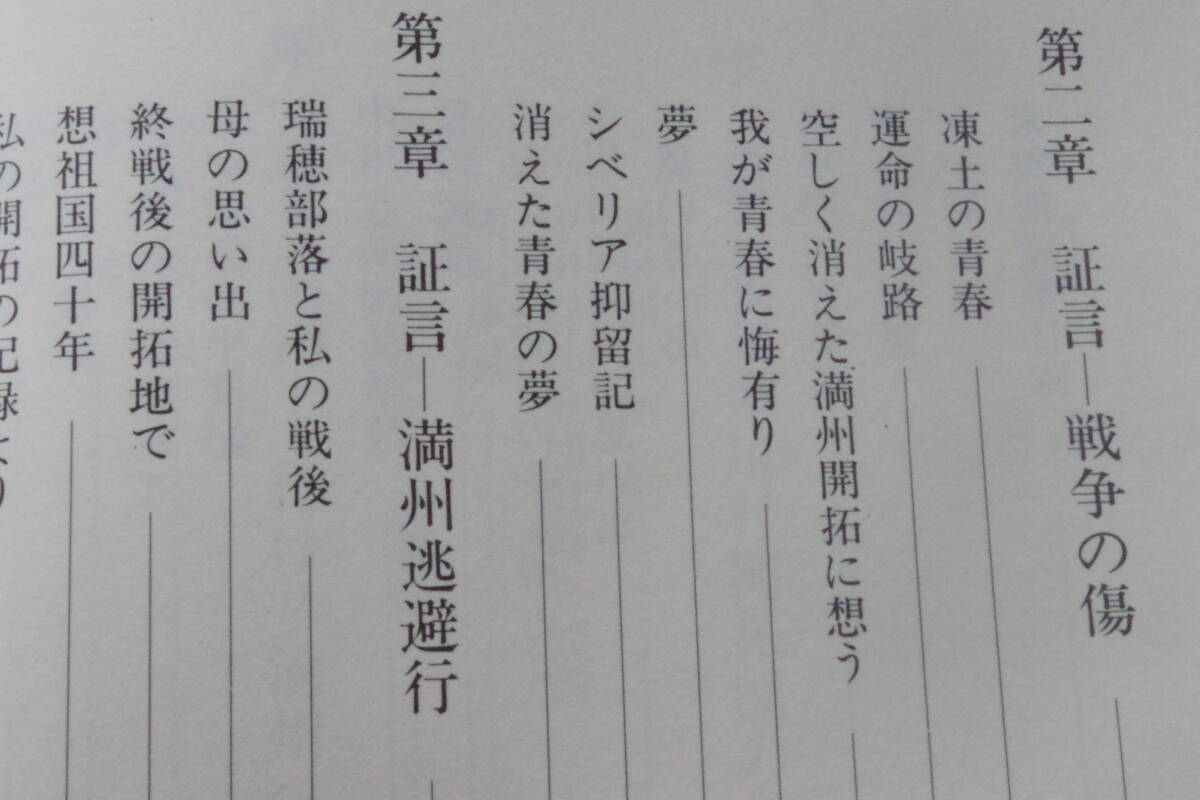 第二章　証言―戦争の傷
凍土の青春
運命の岐路
空しく消えた満州開拓に想う
我が青春に悔有り
夢
シベリア抑留記
消えた青春の夢
第三章　証言―満州逃避行
瑞穂部落と私の戦後
母の思い出
終戦後の開拓地で
想祖国四十年
私の開拓の記録より